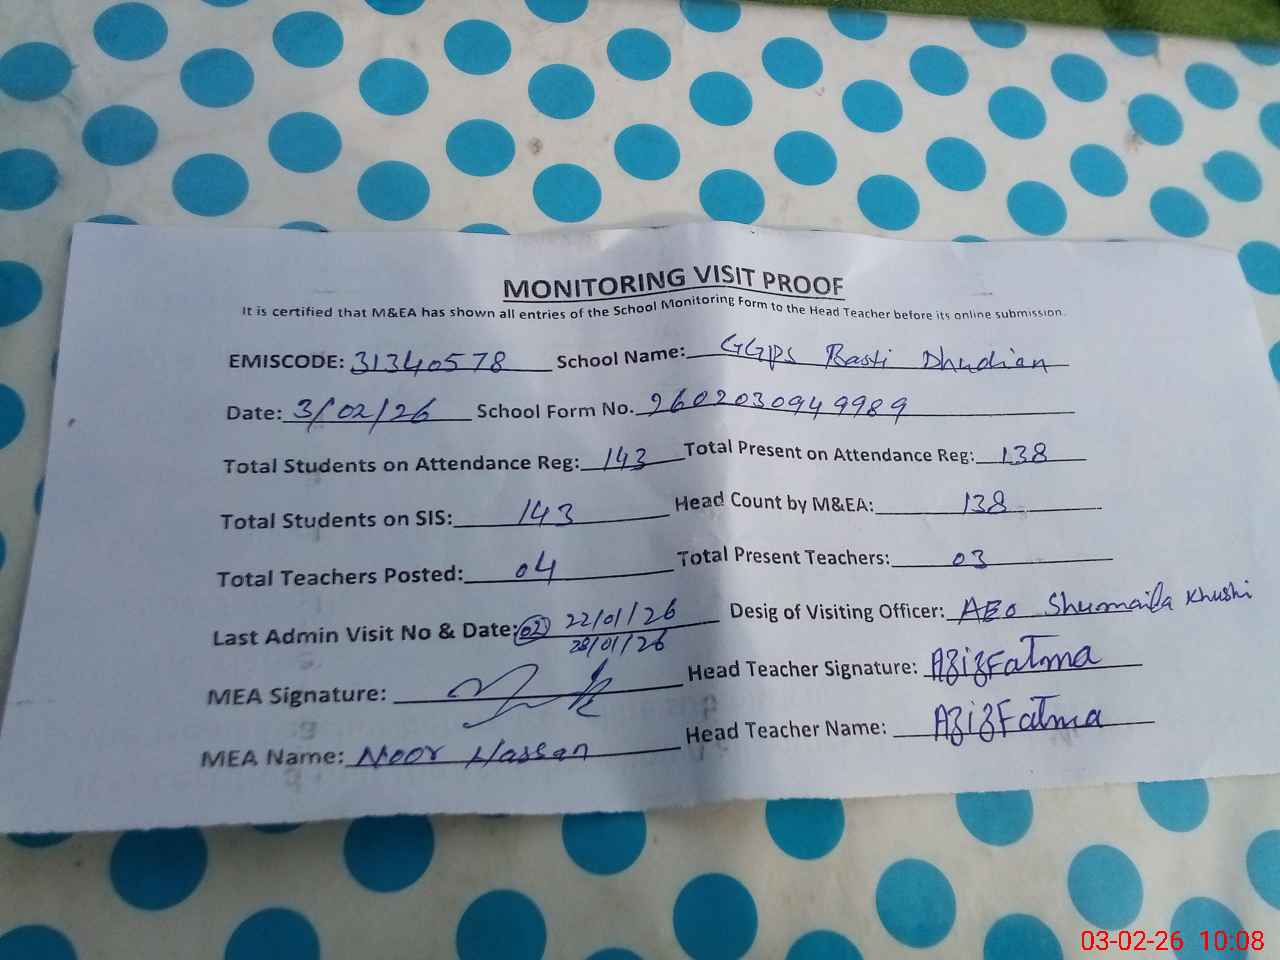 MONITORING VISIT PROOF
It is certified that M&EA has shown all entries of the School Monitoring Form to the Head Teacher before its online submission.
EMISCODE: 31340578 School Name: GGPS Basti Dhudian
Date: 3/02/26 School Form No. 2602030949989
Total Students on Attendance Reg: 143 Total Present on Attendance Reg: 138
Total Students on SIS: 143 Head Count by M&EA: 138
Total Teachers Posted: 04 Total Present Teachers: 03
Last Admin Visit No & Date: 02 22/01/26 Desig of Visiting Officer: AEO Shumaila Khushi
28/01/26
MEA Signature: Head Teacher Signature: AzizFatma
MEA Name: Noor Hassan Head Teacher Name: AzizFatma
03-02-26 10:08